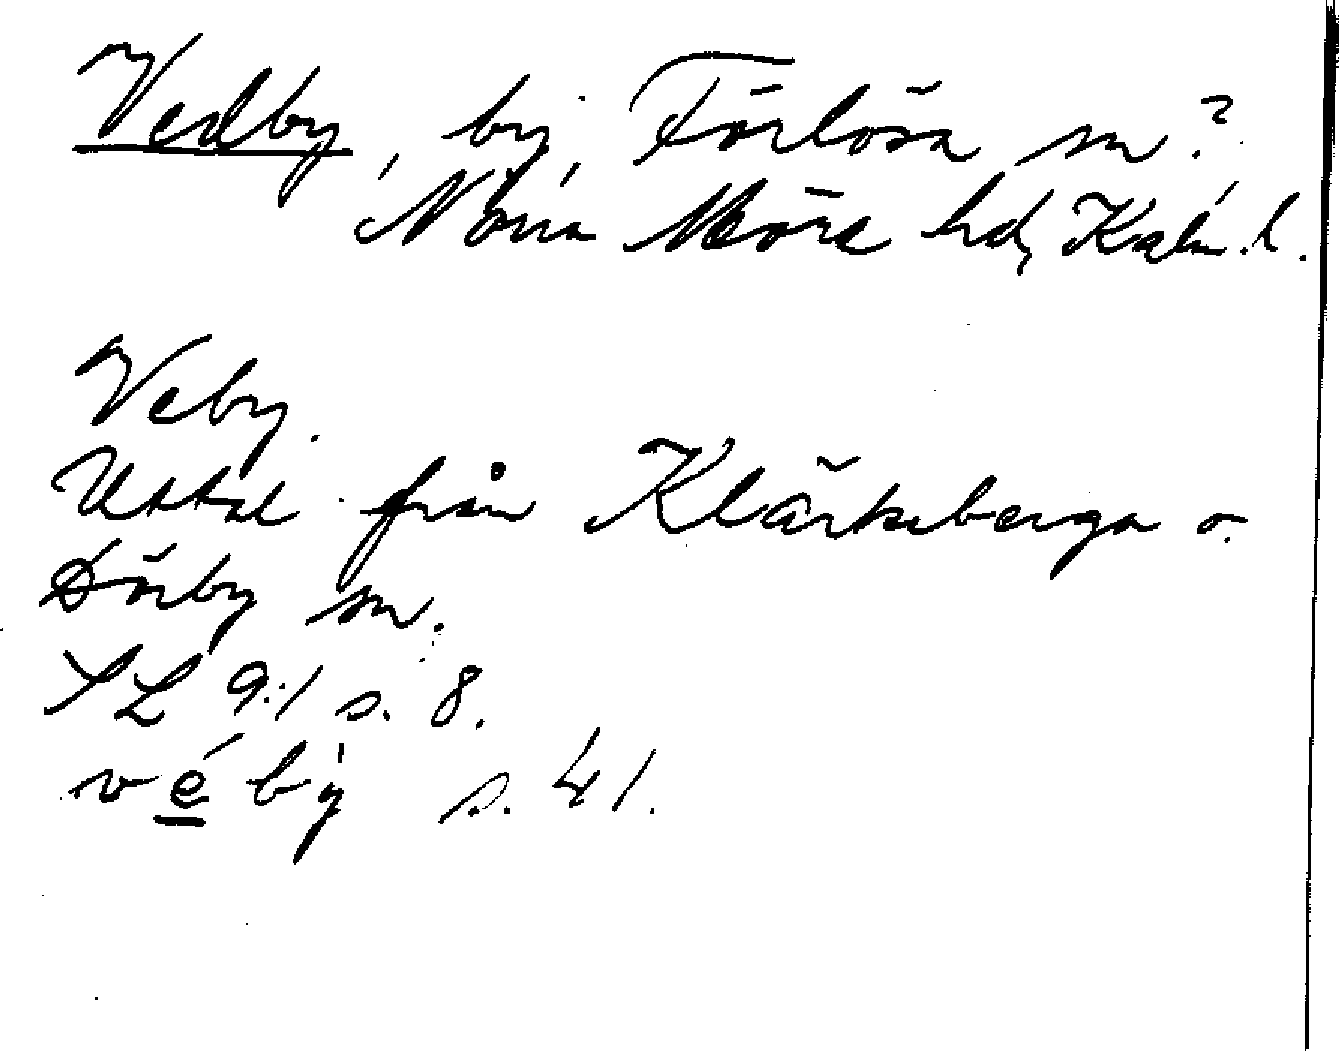 Vedby, by, Förlösa sn?
Norra Möre hd, Kalm. l.
Veby.
Uttal från Kläckeberga o.
Dörby sn.
SL 9:1 s. 8.
vé bỳ s. 41.